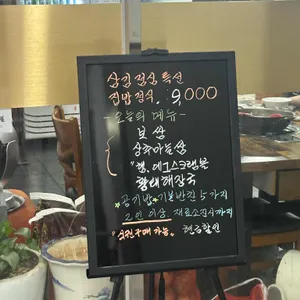 삼김 점심 특선
집밥 정식. 9,000
-오늘의 메뉴-
보쌈
상추마늘쌈
햄, 에그스크램블
황태해장국
공기밥. 기본반찬 5가지
2인 이상. 재료소진시까지
식권구매 가능. 현금할인